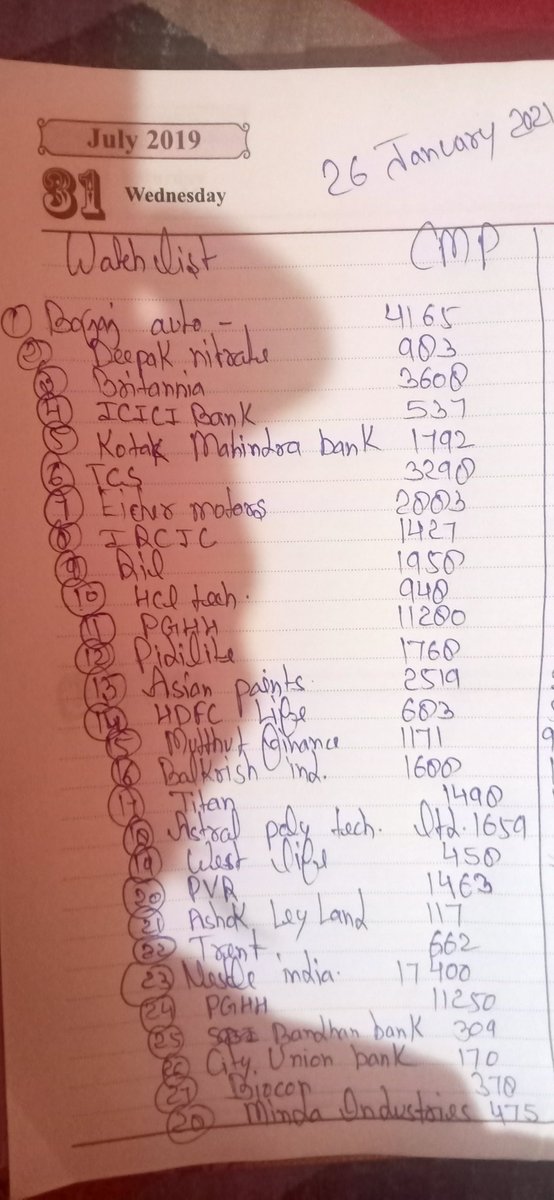 July 2019
26 January 2021
31 Wednesday
Watch list CMP
1 Bajaj auto - 4165
2 Deepak nitrate 903
3 Britannia 3600
4 ICICI Bank 537
5 Kotak Mahindra bank 1792
6 TCS 3290
7 Eicher motors 2803
8 IRCTC 1427
9 Ril 1950
10 HCl tech. 940
11 PGHH 11200
12 Pidilite 1760
13 Asian paints. 2519
14 HDFC Life 683
15 Muthut finance 1171
16 Balkrish ind. 1600
17 Titan 1490
18 Astral poly tech. ltd. 1659
19 West life 450
20 PVR 1463
21 Ashok Ley Land 117
22 Trent 662
23 Nestle india. 17400
24 PGHH 11250
25 Bandhan bank 309
26 City Union bank 170
27 Biocon 370
28 Minda Industries 475